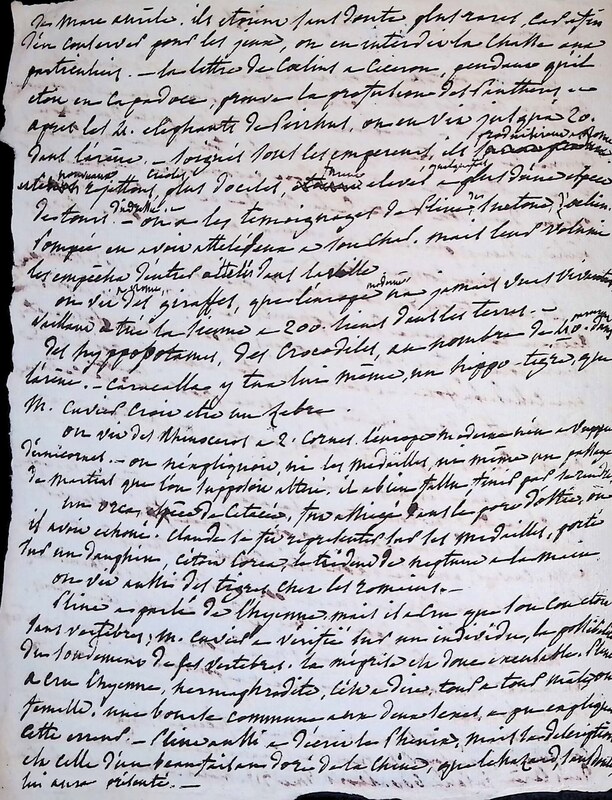 de Marc aurèle, ils étoient sans doute plus rares, car afin
d'en conserver pour les jeux, on en interdit la chasse aux
particuliers. — la lettre de Cœlius a Ciceron, pendant qu'il
étoit en Capadoce, prouve la profusion des Panthères —
après les 4. elephants de Pirrhus, on en vit jusqu'a 20.
dans l'arène. — soignés sous les empereurs, ils produisirent
nouveaux rejettons, plus dociles, elevés a plus d'une espece
de tours d'adresse — on a les temoignages de Pline, de Suetone, d'œlien.
Pompée en avoit attelé deux a son char. mais leur volume
les empêcha d'entrer attelés dans la ville
on vit a rome des giraffes, que l'europe moderne n'a jamais vues vivantes
vaillant a tué la sienne a 200 lieues dans les terres. —
des hyppopotames, des Crocodiles, au nombre de
l'arène. — caracalla y tua lui même, un hippo-tigre, que
M. cuvier croit etre un zebre.
on vit des Rhinoceros a 2. cornes. l'europe moderne n'en a vu que
d'unicornes. — on n'expliquoit, ni les medailles, ni même un passage
de martial que l'on supposoit alteré. il a bien fallu
un orca, espece de Cetacée, fut assiegé dans le port d'ostie, ou
il avoit echoué. Claude se fit representer sur les medailles, porté
sur un dauphin, le trident de neptune a la main.
on vit aussi des tigres chez les romains. —
Pline a parlé de l'hyenne, mais il a cru que son cou etoit
sans vertebres; M. cuvier a verifié sur un individu, la
des soudemens de ses vertebres. la méprise est donc excusable. Pline
a cru l'hyenne, hermaphrodite, c'est a dire, tour a tour mâle, ou
femelle. une bourse commune aux deux sexes, a pu expliquer
cette erreur — Pline aussi a decrit le Phénix, mais la description
est celle d'un beau faisan doré de la Chine, que le hazard, sans doute
lui aura présenté. —